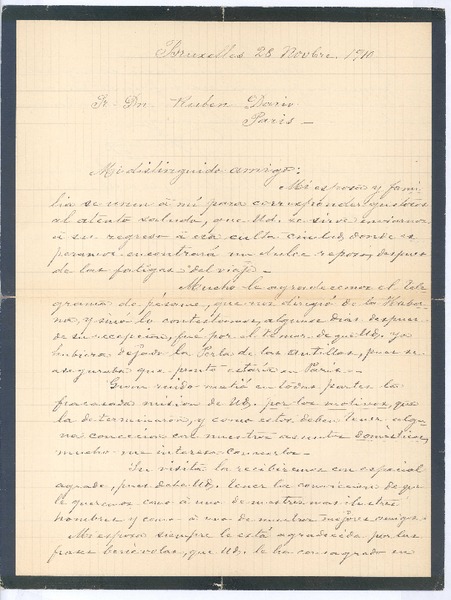 Bruxelles 28 Novbre. 1910
Sr. Dn. Ruben Dario.
Paris —
Mi distinguido amigo:
Mi esposa y fami-
lia se unen á mí para corresponder gustosos
al atento saludo, que Ud. se sirve enviarnos
á su regreso á esa culta ciudad, donde es-
peramos encontrará un dulce reposo, despues
de las fatigas del viaje.
Mucho le agradecemos el tele-
grama de pésame, que nos dirigió de la Haba-
na, y si nó lo contestamos, algunos dias despues
de su recepcion, fué por el temor de que Ud. ya
hubiera dejado la Perla de las Antillas, pues se
aseguraba que pronto estaria en Paris. —
Gran ruido metió en todas partes la
fracasada mision de Ud. por los motivos, que
la determinaron, y como estos deben tener algu-
na conexion con nuestros asuntos domésticos,
mucho me interesa conocerlos. —
Su visita la recibiremos con especial
agrado, pues debe Ud. tener la conviccion de que
le queremos como á uno de nuestros mas ilustres
hombres y como á uno de nuestros mejores amigos.
Mi esposa siempre le está agradecida por las
frases benévolas, que Ud. le ha consagrado en